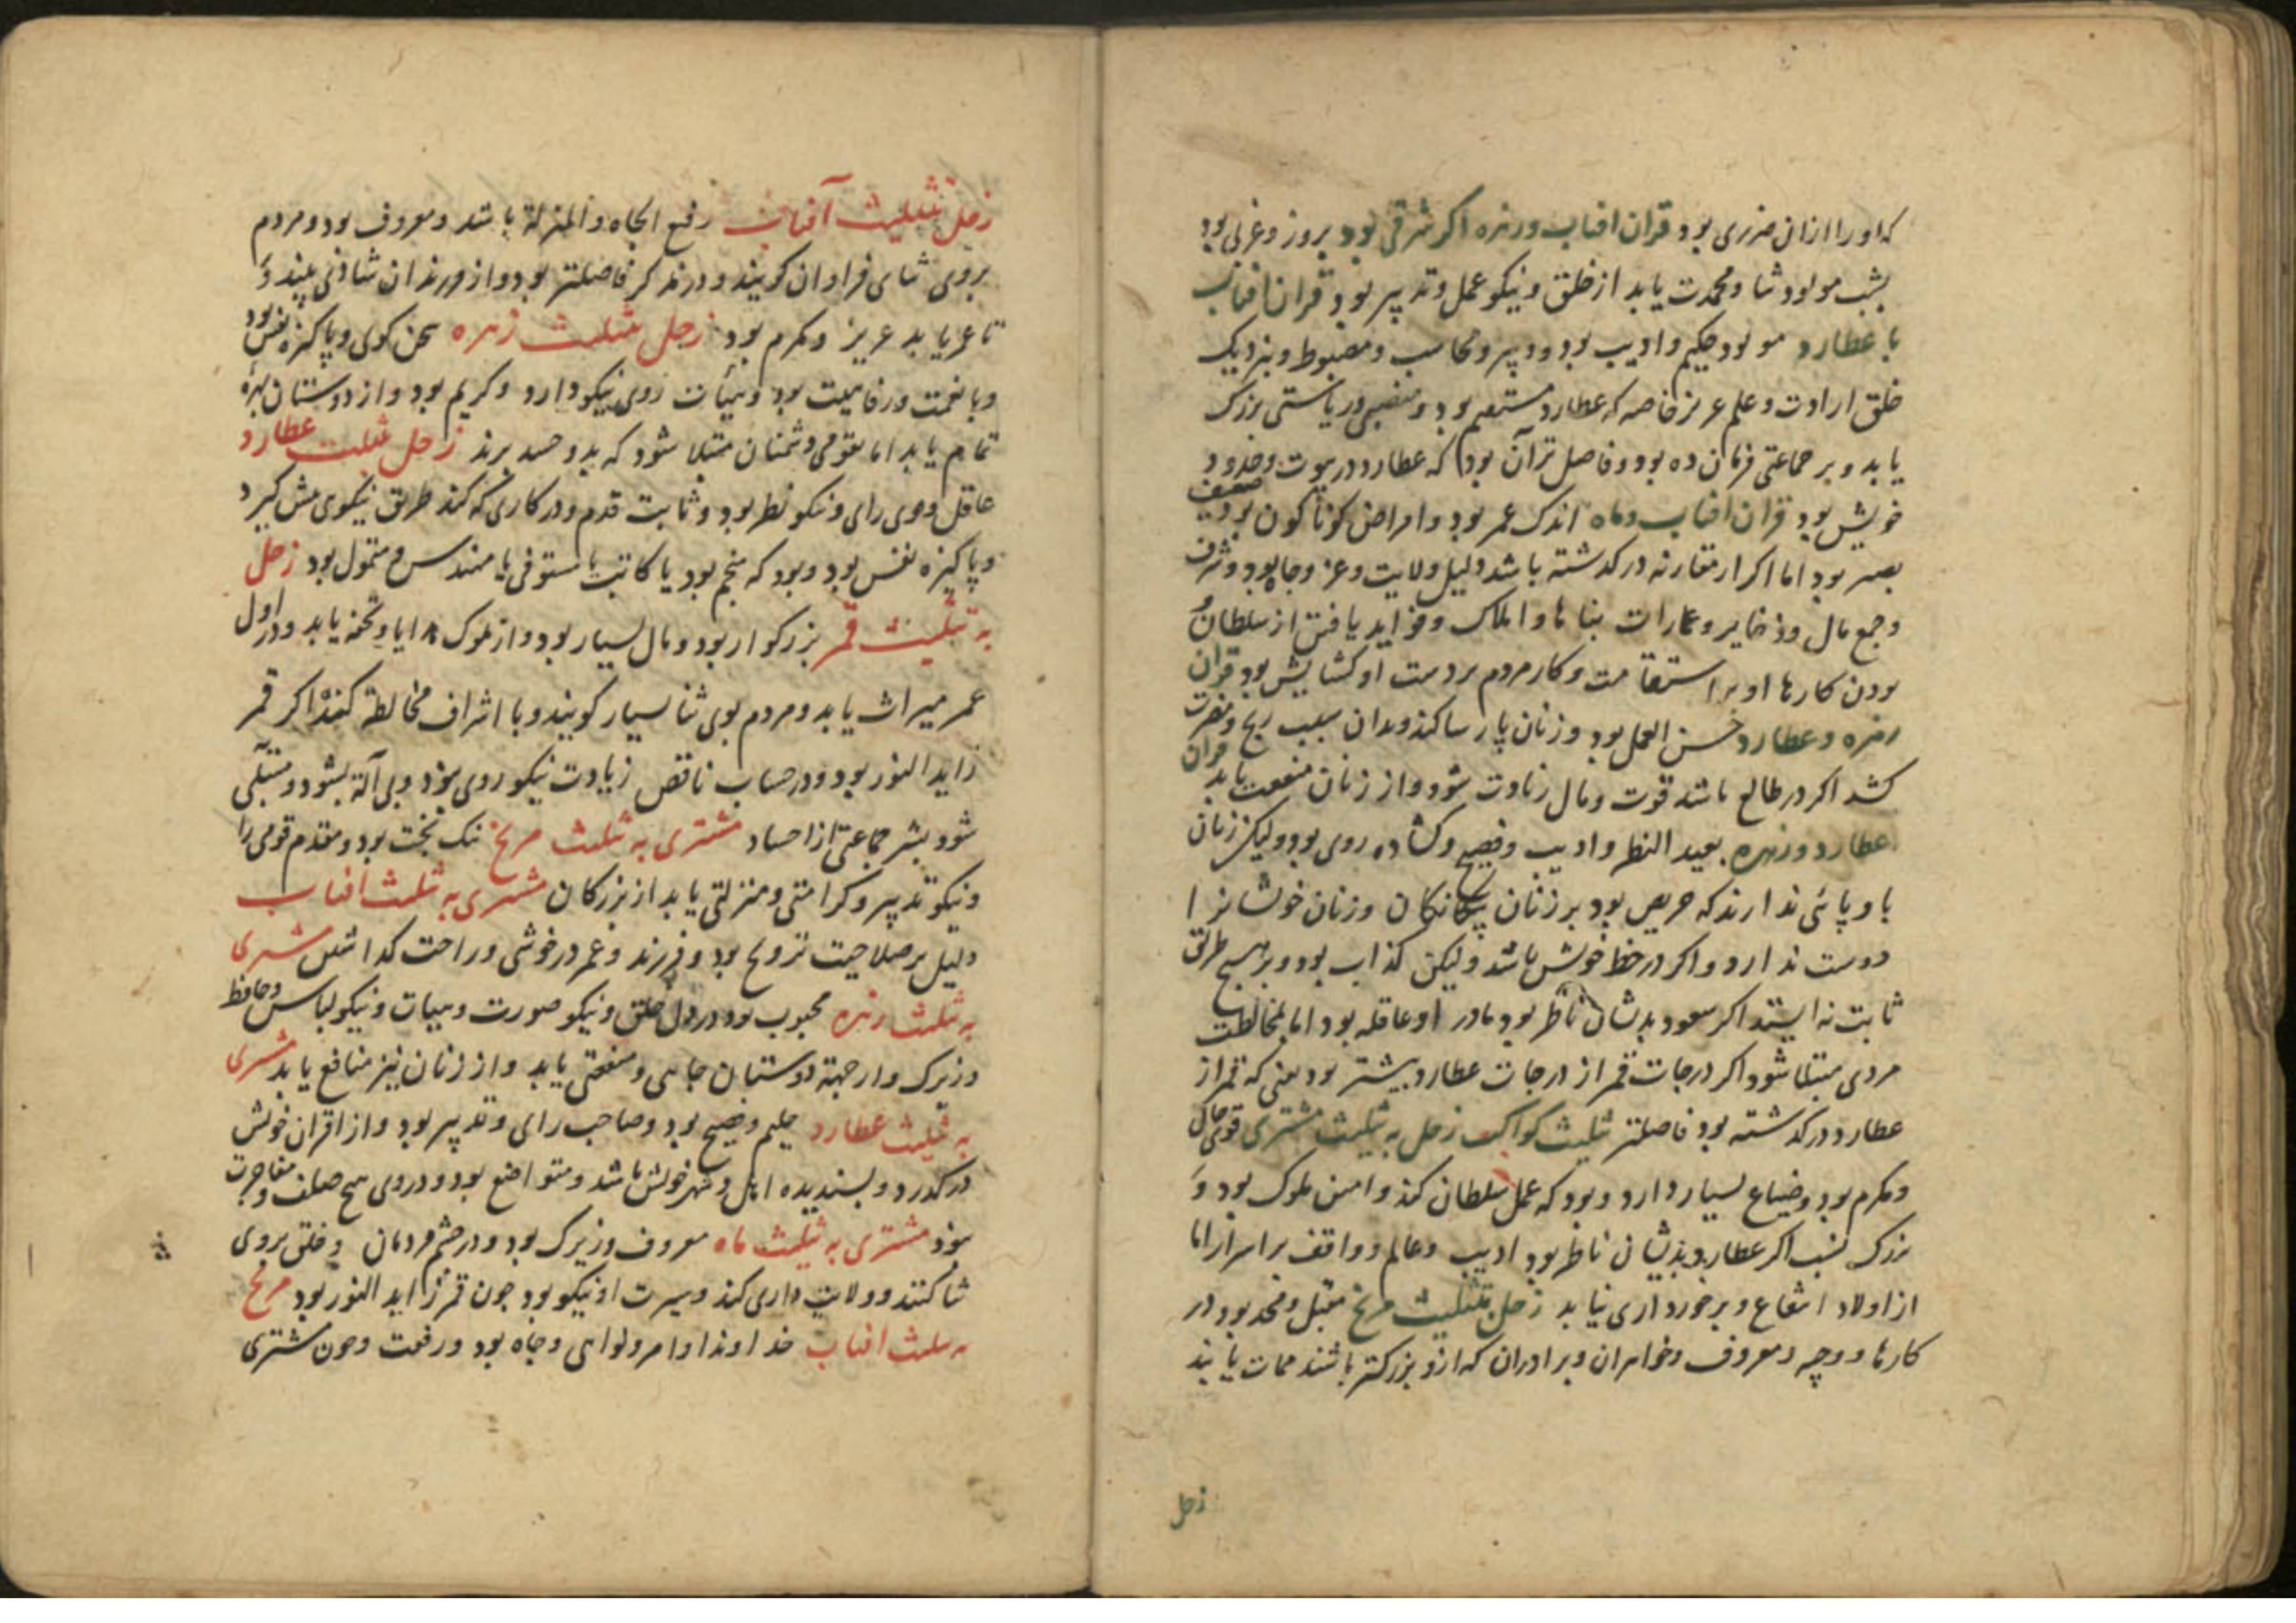 که او را از ان ضرری بود قران افتاب و زهره اکر شرقی بود بروز و غربی بود
بشب مولود ثنا و محمدت یابد از خلق و نیکو عمل و تدبیر بود قران افتاب
با عطارد مولود حکیم و ادیب بود و دبیر و محاسب و مضبوط و بنزدیک
خلق ارادت و علم عزیز خاصه که عطارد مستقیم بود و منصبی و ریاستی بزرک
یابد و بر جماعتی فرمان ده بود و فاضل تر آن بود که عطارد در بیوت و حدود
خویش بود قران افتاب و ماه اندک عمر بود و امراض کوناکون بود ضعیف
بصر بود اما اکر از مقارنه در کذشته باشد دلیل ولایت و عز و جاه بود و شرف
و جمع مال و ذخایر و عمارات بناها و املاک و فواید یافتن از سلطان و
بودن کارها او بر استقامت و کار مردم بر دست او کشایش بود قران
زهره و عطارد حسن العمل بود و زنان پارسا کند و بدان سبب رنج و مضرت
کشد اکر در طالع باشد قوت و مال زیادت شود و از زنان منفعت یابد قران
عطارد و زهره بعید النظر و ادیب و فصیح و کشاده روی بود ولیکن زنان
با و پائی ندارند که حریص بود بر زنان بیکانکان و زنان خویشانرا
دوست ندارد و اکر در خط خویش باشد ولیکن کذاب بود و بر هیچ طریق
ثابت نه ایستد اکر سعود بدیشان ناظر بود مادر او عاقله بود اما بمخالطت
مردی مبتلا شود اکر درجات قمر از درجات عطارد بیشتر بود یعنی که قمر از
عطارد در کذشته بود فاضلتر تثلیث کواکب زحل به تثلیث مشتری قوی حال
و مکرم بود و ضیاع بسیار دارد و بود که عمل سلطان کند و امین ملوک بود و
بزرک نسب اکر عطارد بدیشان ناظر بود ادیب و عالم و واقف بر اسرار اما
از اولاد انتفاع و برخورداری نیابد زحل بتثلیث مریخ مقبل و محمد بود در
کارها و وجیه و معروف و خواهران و برادران که ازو بزرکتر باشند ممات یابند
زحل
زحل بتثلیث آفتاب رفیع الجاه و المنزلة باشد و معروف بود و مردم
بروی ثنای فراوان کویند و در مذکر فاضلتر بود و از فرزندان شادی بیند و
تا عز یابد عزیز و مکرم بود زحل بتثلیث زهره سخن کوی و پاکیزه نفس بود
و با نعمت و رفاهیت بود و هیات روی نیکو دارد و کریم بود و از دوستان بهره
تمام یابد اما بقومی دشمنان مبتلا شود که بدو حسد برند زحل بتثلیث عطارد
عاقل و قوی رای و نیکو نظر بود و ثابت قدم و در کاری که کند طریق نیکوی پیش کیرد
و پاکیزه نفس بود و بود که منجم بود یا کاتب یا مستوفی یا مهندس و متمول بود زحل
به تثلیث قمر بزرکوار بود و مال بسیار بود و از ملوک هدایا و تحفه یابد و در اول
عمر میراث یابد و مردم بوی ثنا بسیار کویند و با اشراف مخالطة کند و اکر قمر
زاید النور بود و در حساب ناقص زیادت نیکو روی بود و بی آلة بشود و مبتلی
شود بشر جماعتی از احساد مشتری به تثلیث مریخ نیک بخت بود و مقدم قومی را
و نیکو تدبیر و کرامتی و منزلتی یابد از بزرکان مشتری به تثلیث افتاب
دلیل بر صلاحیت تزویج بود و فرزند و عمر در خوشی و راحت کذراند مشتری
به تثلیث زهره محبوب بود در دل خلق و نیکو صورت و هیات و نیکو لباس و حافظ
و زیرک و از جهة دوستان جاهی و منفعتی یابد و از زنان نیز منافع یابد مشتری
به تثلیث عطارد حلیم و فصیح بود و صاحب رای و تدبیر بود و از اقران خویش
درکذرد و پسندیده اهل و شهر خویش باشد و متواضع بود و در وی هیچ صلف و مفاخرت
نبود مشتری به تثلیث ماه معروف و زیرک بود و در چشم مردمان و خلق بروی
ثنا کنند و ولایت داری کند و سیرت او نیکو بود چون قمر زاید النور بود مریخ
به تثلیث افتاب خداوند اوامر و نواهی و جاه بود و رفعت و چون مشتری